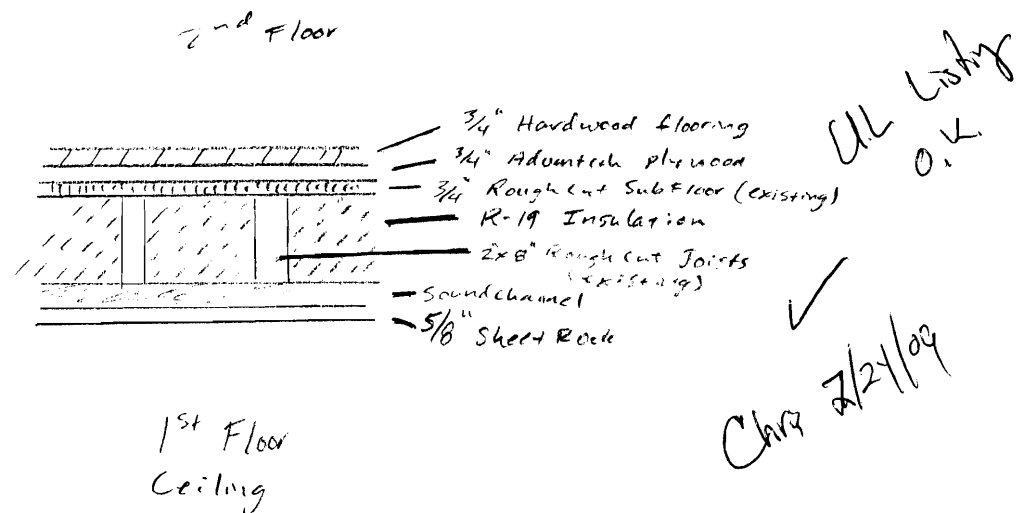 2nd Floor
3/4" Hardwood flooring
3/4" Advantech plywood
3/4" Rough cut SubFloor (existing)
R-19 Insulation
2"x8" Rough cut Joists
(existing)
Soundchannel
5/8" Sheet Rock
1st Floor
Ceiling
U.L Listing
O.K.
Chris /24/09